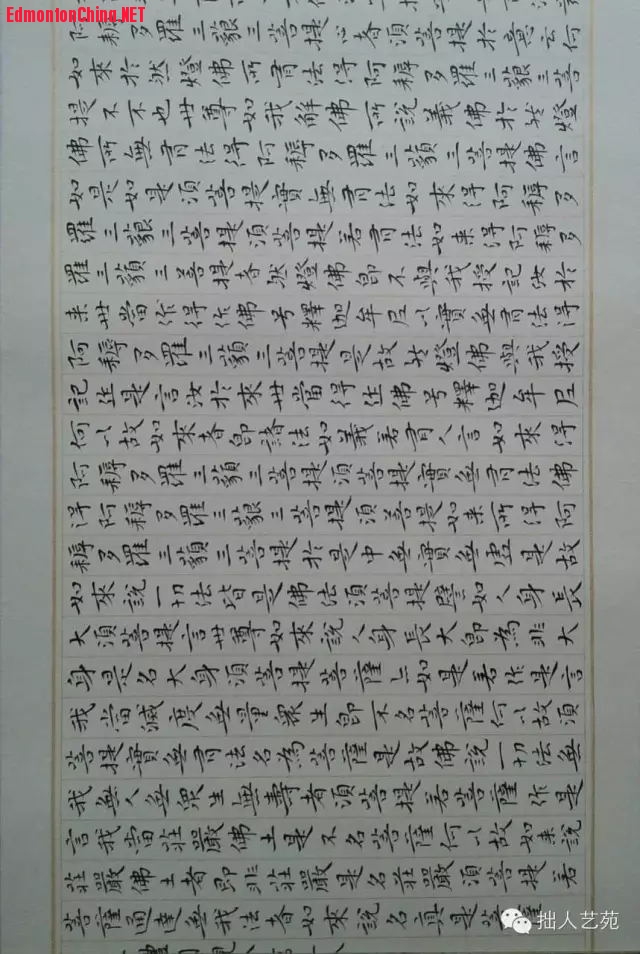 EdmontonChina.NET
阿耨多羅三藐三菩提心者須菩提於意云何
如來於然燈佛所有法得阿耨多羅三藐三菩
提不不也世尊如我解佛所說義佛於然燈
佛所無有法得阿耨多羅三藐三菩提佛言
如是如是須菩提實無有法如來得阿耨多
羅三藐三菩提須菩提若有法如来得阿耨多
羅三藐三菩提者然燈佛即不與我授記汝於
来世當作得作佛号釋迦牟尼以實無有法得
阿耨多羅三藐三菩提是故然燈佛與我授
記作是言汝於來世當得作佛号釋迦牟尼
何以故如來者即諸法如義若有人言如來得
阿耨多羅三藐三菩提須菩提實無有法佛
得阿耨多羅三藐三菩提須菩提如来所得阿
耨多羅三藐三菩提於是中無實無虛是故
如來說一切法皆是佛法須菩提譬如人身長
大須菩提言世尊如來說人身長大即為非大
身是名大身須菩提菩薩亦如是若作是言
我當滅度無量眾生即不名菩薩何以故須
菩提實無有法名為菩薩是故佛說一切法無
我無人無眾生無壽者須菩提若菩薩作是
言我當莊嚴佛土是不名菩薩何以故如来說
莊嚴佛土者即非莊嚴是名莊嚴須菩提若
菩薩通達無我法者如來說名真是菩薩
拙人艺苑